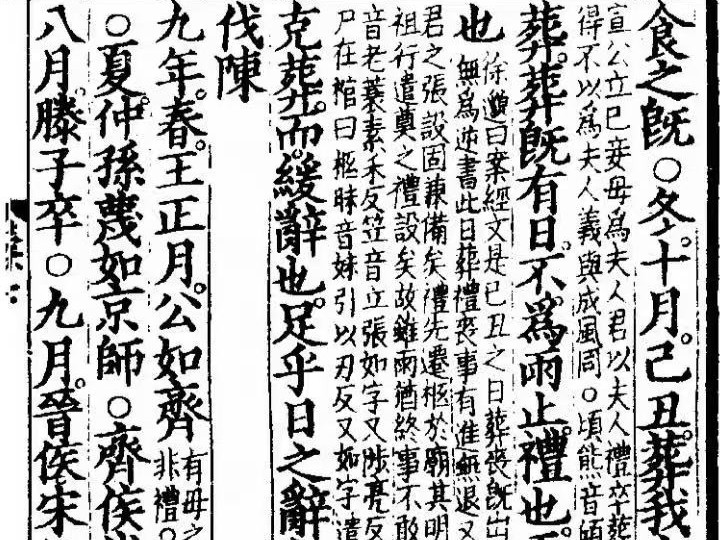 食之旣○冬十月己丑葬我
宣公立已妾母爲夫人君以夫人禮卒葬
得不以爲夫人義與成風同○頃熊音
葬葬旣有日不爲雨止禮也
也
徐邈曰案經文是己丑之日葬喪旣出
無爲逆書此日葬禮喪事有進無退又
君之張設固兼備矣禮先遷柩於廟其明
祖行遣奠之禮設矣故雖雨猶終事不敢
音老蓑素禾反笠音立張如字又陟亮反
尸在棺曰柩昧音妹引以刃反又如字遣
克葬而緩辭也足乎日之辭
伐陳
九年春王正月公如齊
有母之
非禮○
○夏仲孫蔑如京師○齊侯
八月滕子卒○九月晉侯宋